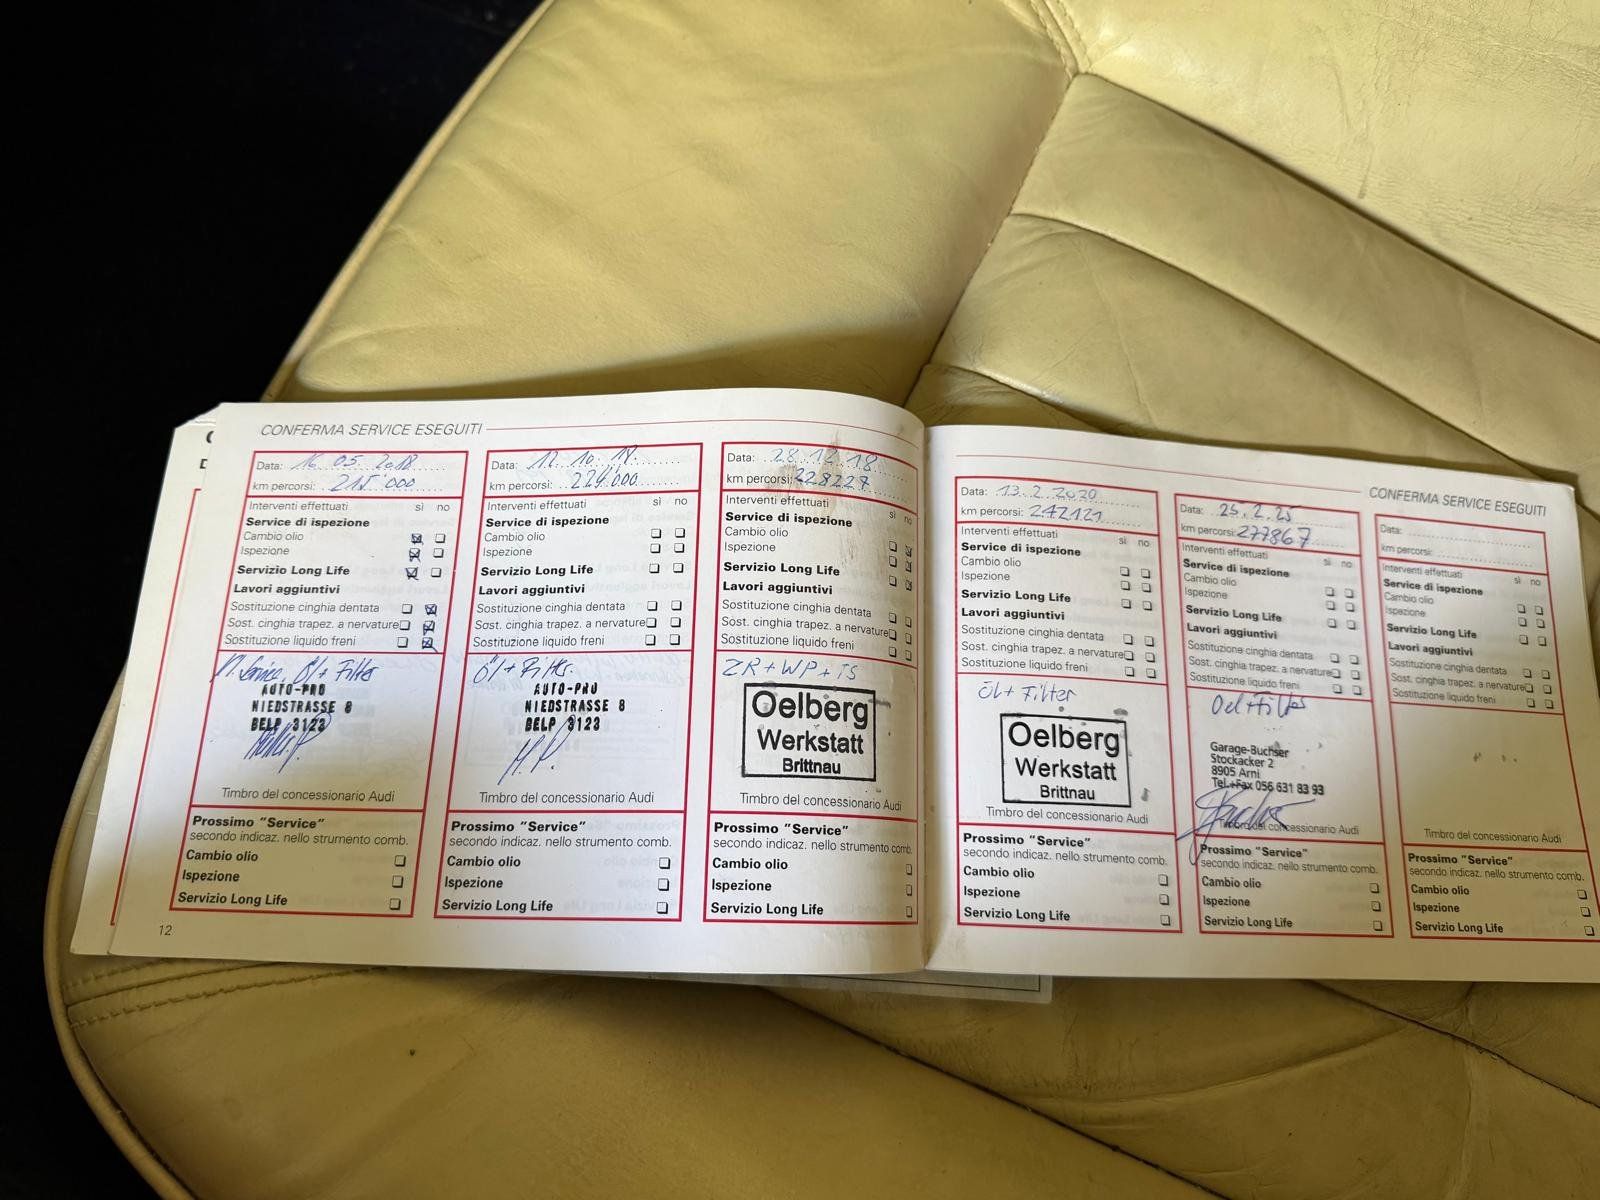 CONFERMA SERVICE ESEGUITI
Data: 16.05.2018
km percorsi: 215'000
Interventi effettuati sì no
Service di ispezione
Cambio olio
Ispezione
Servizio Long Life
Lavori aggiuntivi
Sostituzione cinghia dentata
Sost. cinghia trapez. a nervature
Sostituzione liquido freni
Öl + Filter
AUTO-PRO
NIEDSTRASSE 8
BELP 3123
Timbro del concessionario Audi
Prossimo "Service"
secondo indicaz. nello strumento comb.
Cambio olio
Ispezione
Servizio Long Life
12
Data:
km percorsi: 224'000
Interventi effettuati sì no
Service di ispezione
Cambio olio
Ispezione
Servizio Long Life
Lavori aggiuntivi
Sostituzione cinghia dentata
Sost. cinghia trapez. a nervature
Sostituzione liquido freni
Öl + Filter
AUTO-PRO
NIEDSTRASSE 8
BELP 3123
Timbro del concessionario Audi
Prossimo "Service"
secondo indicaz. nello strumento comb.
Cambio olio
Ispezione
Servizio Long Life
Data: 28.12.18
km percorsi: 228227
Interventi effettuati sì no
Service di ispezione
Cambio olio
Ispezione
Servizio Long Life
Lavori aggiuntivi
Sostituzione cinghia dentata
Sost. cinghia trapez. a nervature
Sostituzione liquido freni
ZR + WP + TS
Oelberg
Werkstatt
Brittnau
Timbro del concessionario Audi
Prossimo "Service"
secondo indicaz. nello strumento comb.
Cambio olio
Ispezione
Servizio Long Life
CONFERMA SERVICE ESEGUITI
Data: 13.2.2020
km percorsi: 242121
Interventi effettuati sì no
Service di ispezione
Cambio olio
Ispezione
Servizio Long Life
Lavori aggiuntivi
Sostituzione cinghia dentata
Sost. cinghia trapez. a nervature
Sostituzione liquido freni
Öl + Filter
Oelberg
Werkstatt
Brittnau
Timbro del concessionario Audi
Prossimo "Service"
secondo indicaz. nello strumento comb.
Cambio olio
Ispezione
Servizio Long Life
Data: 25.2.25
km percorsi: 277867
Interventi effettuati sì no
Service di ispezione
Cambio olio
Ispezione
Servizio Long Life
Lavori aggiuntivi
Sostituzione cinghia dentata
Sost. cinghia trapez. a nervature
Sostituzione liquido freni
Oel+Filter
Garage-Buchser
Stockacker 2
8905 Arni
Tel.+Fax 056 631 83 93
Timbro del concessionario Audi
Prossimo "Service"
secondo indicaz. nello strumento comb.
Cambio olio
Ispezione
Servizio Long Life
Data:
km percorsi:
Interventi effettuati sì no
Service di ispezione
Cambio olio
Ispezione
Servizio Long Life
Lavori aggiuntivi
Sostituzione cinghia dentata
Sost. cinghia trapez. a nervature
Sostituzione liquido freni
Timbro del concessionario Audi
Prossimo "Service"
secondo indicaz. nello strumento comb.
Cambio olio
Ispezione
Servizio Long Life